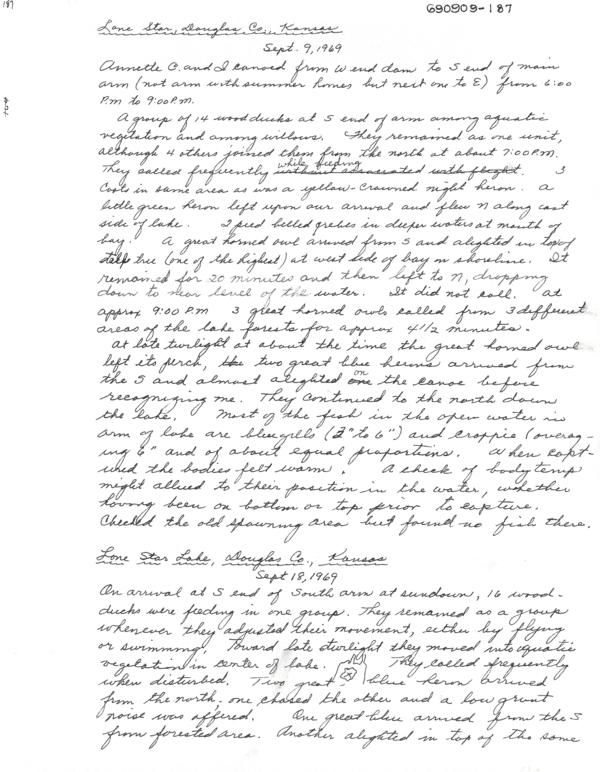 187
690909-187
Lone Star, Douglas Co., Kansas
Sept. 9, 1969
Annette C. and I canoed from W end dam to S end of main
arm (not arm with summer homes but next one to E) from 6:00
P.m to 9:00 P.m.
A group of 14 wood ducks at S end of arm among aquatic
vegitation and among willows. They remained as one unit,
although 4 others joined them from the north at about 7:00 P.m.
They called frequently while feeding without associated with flight. 3
Coots in same area as was a yellow-crowned night heron. A
little green heron left upon our arrival and flew N along east
side of lake. 2 pied billed grebes in deeper waters at mouth of
bay. A great horned owl arrived from S and alighted in top of
tree (one of the highest) at west side of bay on shoreline. It
remained for 20 minutes and then left to N, dropping
down to near level of the water. It did not call. At
approx 9:00 P.m 3 great horned owls called from 3 different
areas of the lake forests for approx 4 1/2 minutes.
At late twilight at about the time the great horned owl
left its perch, the two great blue herons arrived from
the S and almost alighted on the canoe before
recognizing me. They continued to the north down
the lake. Most of the fish in the open water in
arm of lake are bluegills (3" to 6") and croppie (averag-
ing 6" and of about equal proportions. When capt-
ured the bodies felt warm. A check of body temp
might allued to their position in the water, whether
having been on bottom or top prior to capture.
Checked the old spawning area but found no fish there.
Lone Star Lake, Douglas Co., Kansas
Sept 18, 1969
On arrival at S end of South arm at sundown, 16 wood-
ducks were feeding in one group. They remained as a group
whenever they adjusted their movement, either by flying
or swimming. Toward late twilight they moved into aquatic
vegetation in center of lake. They called frequently
when disturbed. Two great blue heron arrived
from the north. one chased the other and a low grunt
noise was offered. One great blue arrived from the S
from forested area. Another alighted in top of the same